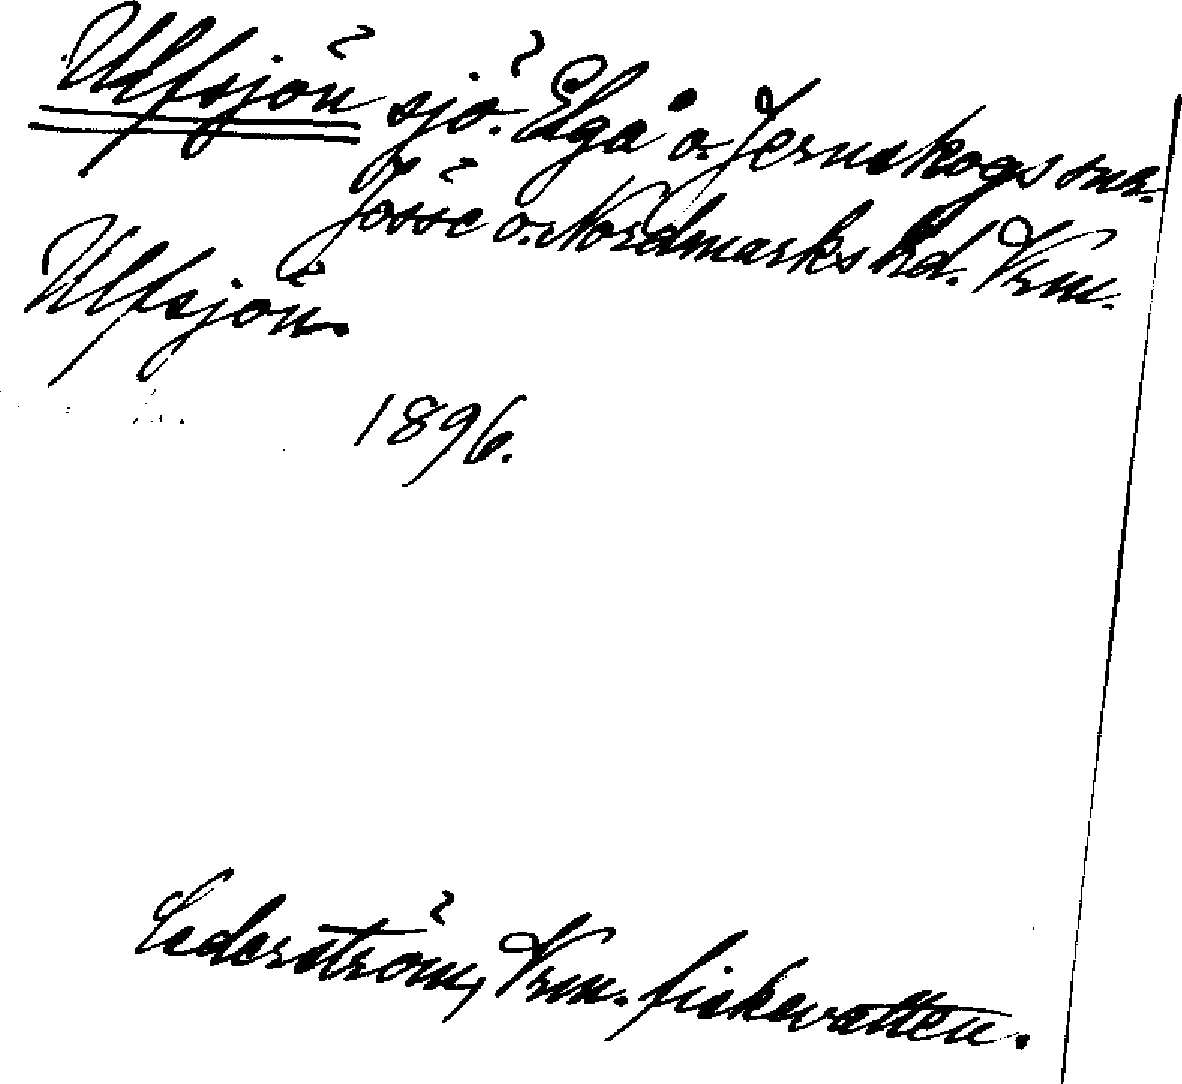 Ulfsjön sjö. Elgå o. Jernskogs snr.
Jösse o. Nordmarks hd. Vrm.
Ulfsjön.
1896.
Cederström, Vrm. fiskevatten.